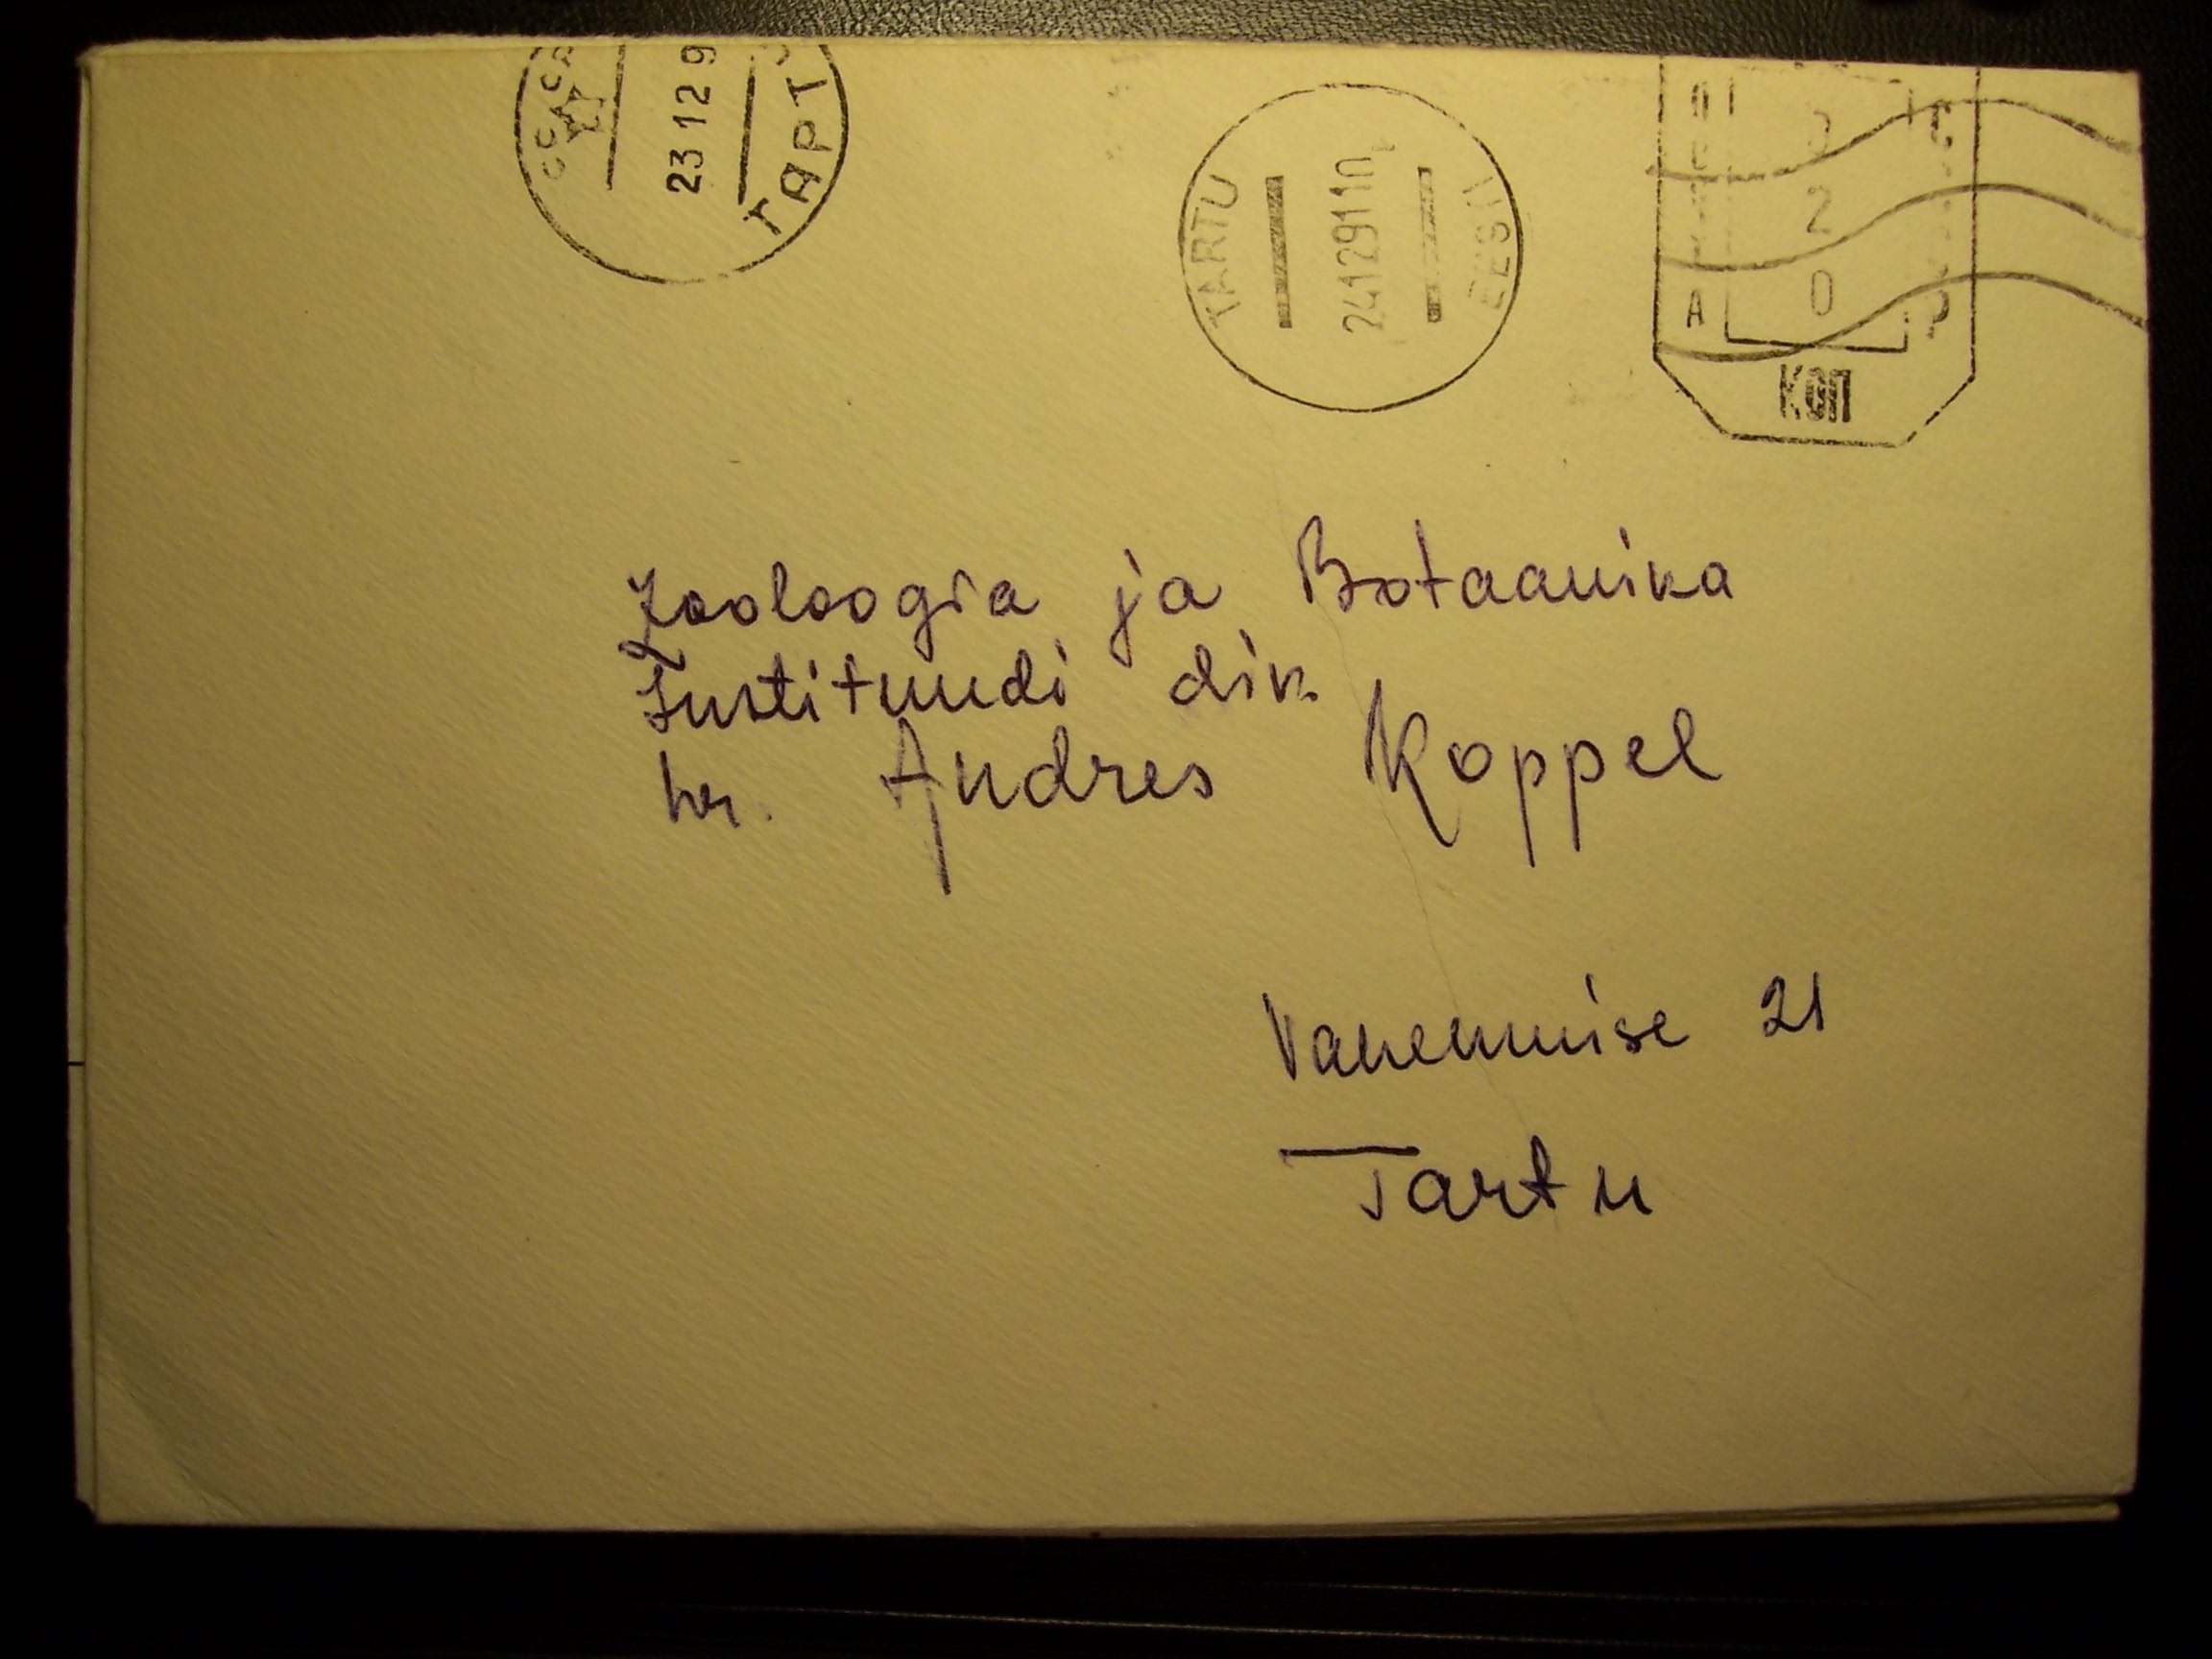 СССР
23 12 9
ТАРТ
TARTU
24129110
EESTI
0
2
0
А
Р
КОП
Zooloogia ja Botaanika
Instituudi dir.
hr. Andres Koppel
Vanemuise 21
Tartu